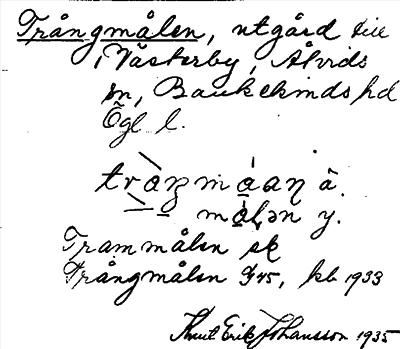 Trångmålen, utgård till
i Västerby, Åtvids
sn, Bankekinds hd
Ögl l.
målən y.
Trammålen sk
Trångmålen G45, kb 1933
Knut Erik Johansson 1935